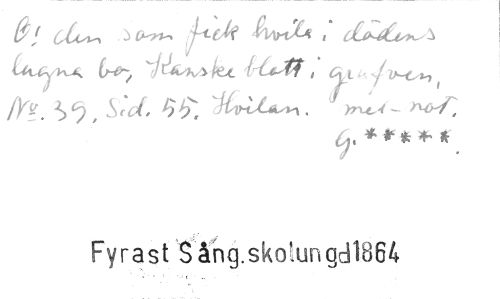 O! den som fick hvila i dödens
lugna bo, Kanske blott i grafven,
No. 39, Sid. 55. Hvilan. met-not.
G. * * * * *.
Fyrast Sång.skolungd1864